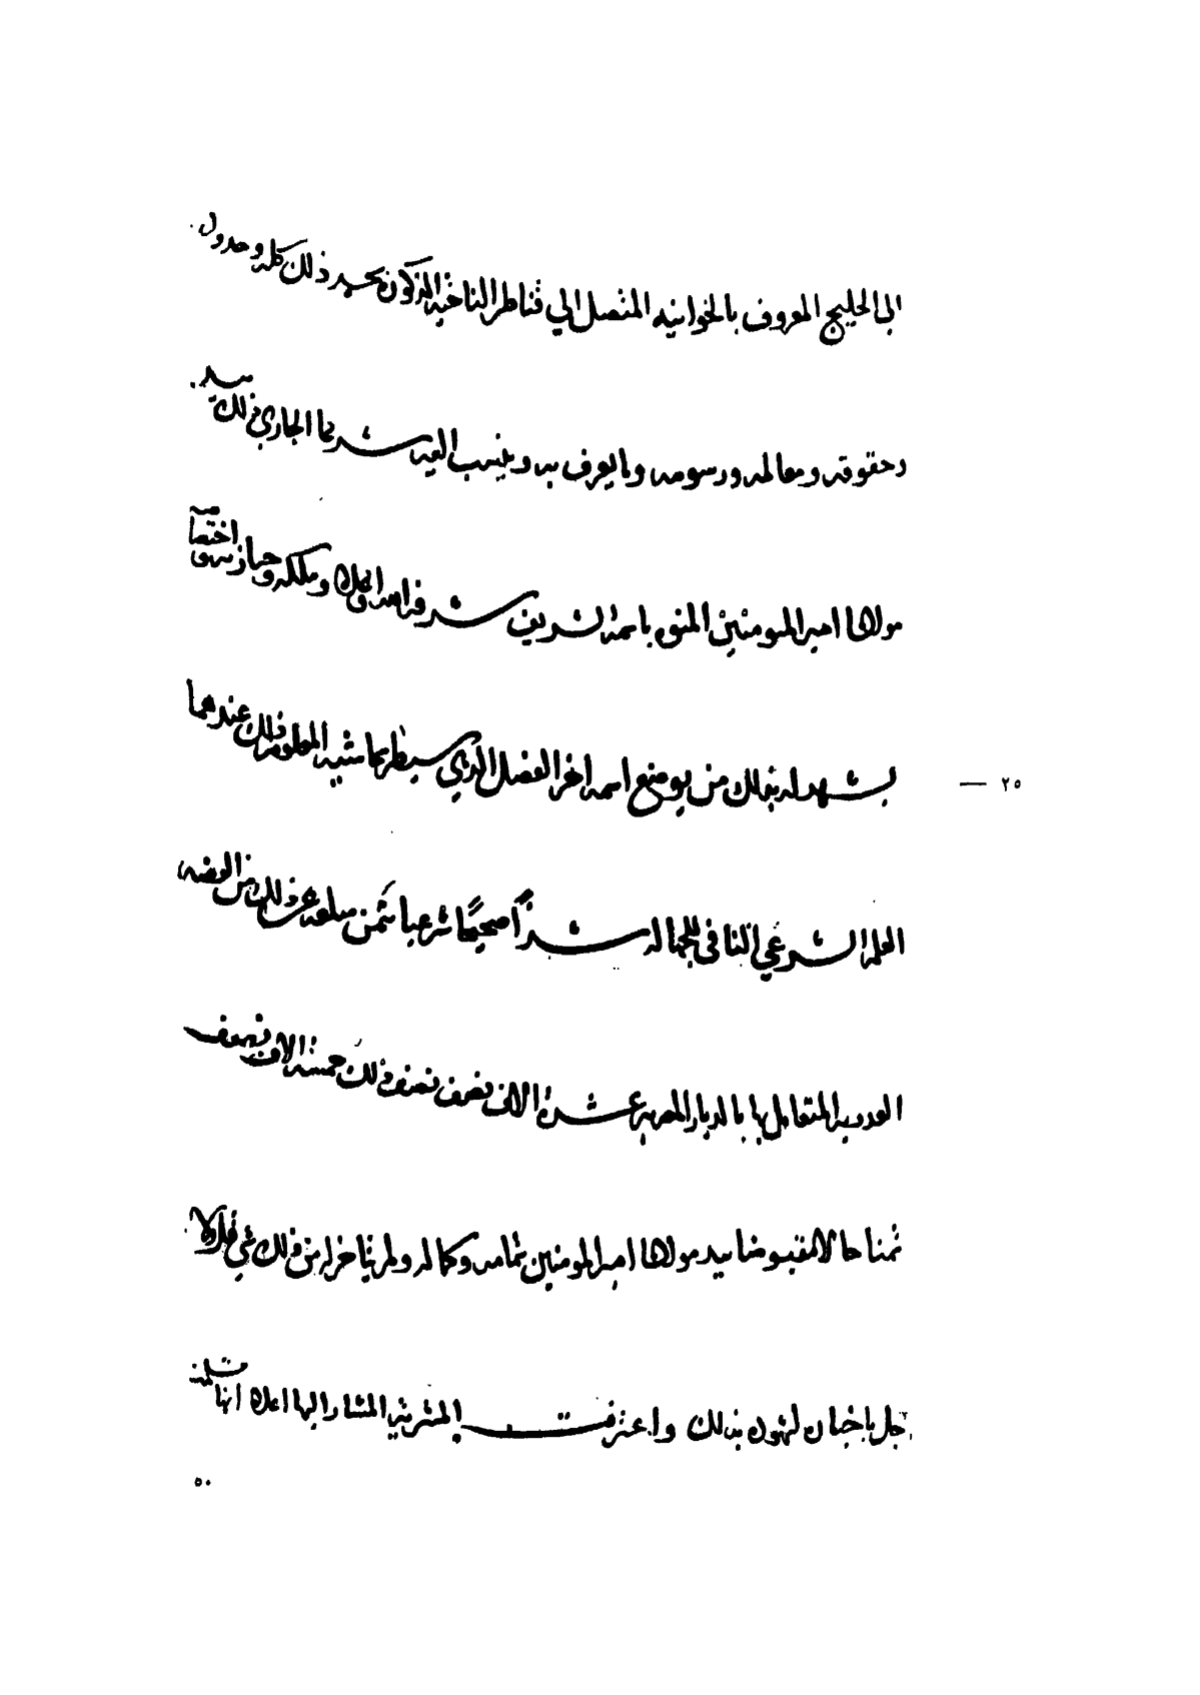 الى الخليج المعروف بالخوانيه المتصل الي قناطر الناخيه المذكوره بحميع ذلك كله وحدوده
وحقوقه ومعالمه ورسومه وما يعرف به وينسب اليه شرعا الجاري ذلك بيد
مولانا امير المومنين المنوه باسمه الشريف شرفه الله اعلاه وملكه وحيازته واختصاصه
يشهد له بذلك من يوضع اسمه اخر الفصل الذي سيطر بهامشيه المعلوم ذلك عندهما
العلم الشرعي النافى للجهاله شراً صحيحًا شرعيا بثمن مبلغه عن ذلك من الفضه
العدديه المتعامل بها بالديار المصريه عشرة الاف نصف نصف ذلك خمسة الاف نصف
ثمنا حالا مقبوضا بيد مولانا امير المومنين بتمامه وكماله ولم يتاخر له من ذلك شي قل ولا
جل باخباره لشهوده بذلك واعترفت المشتريه المشار اليها اعلاه انها تسلمت
٢٥ —
٥٠